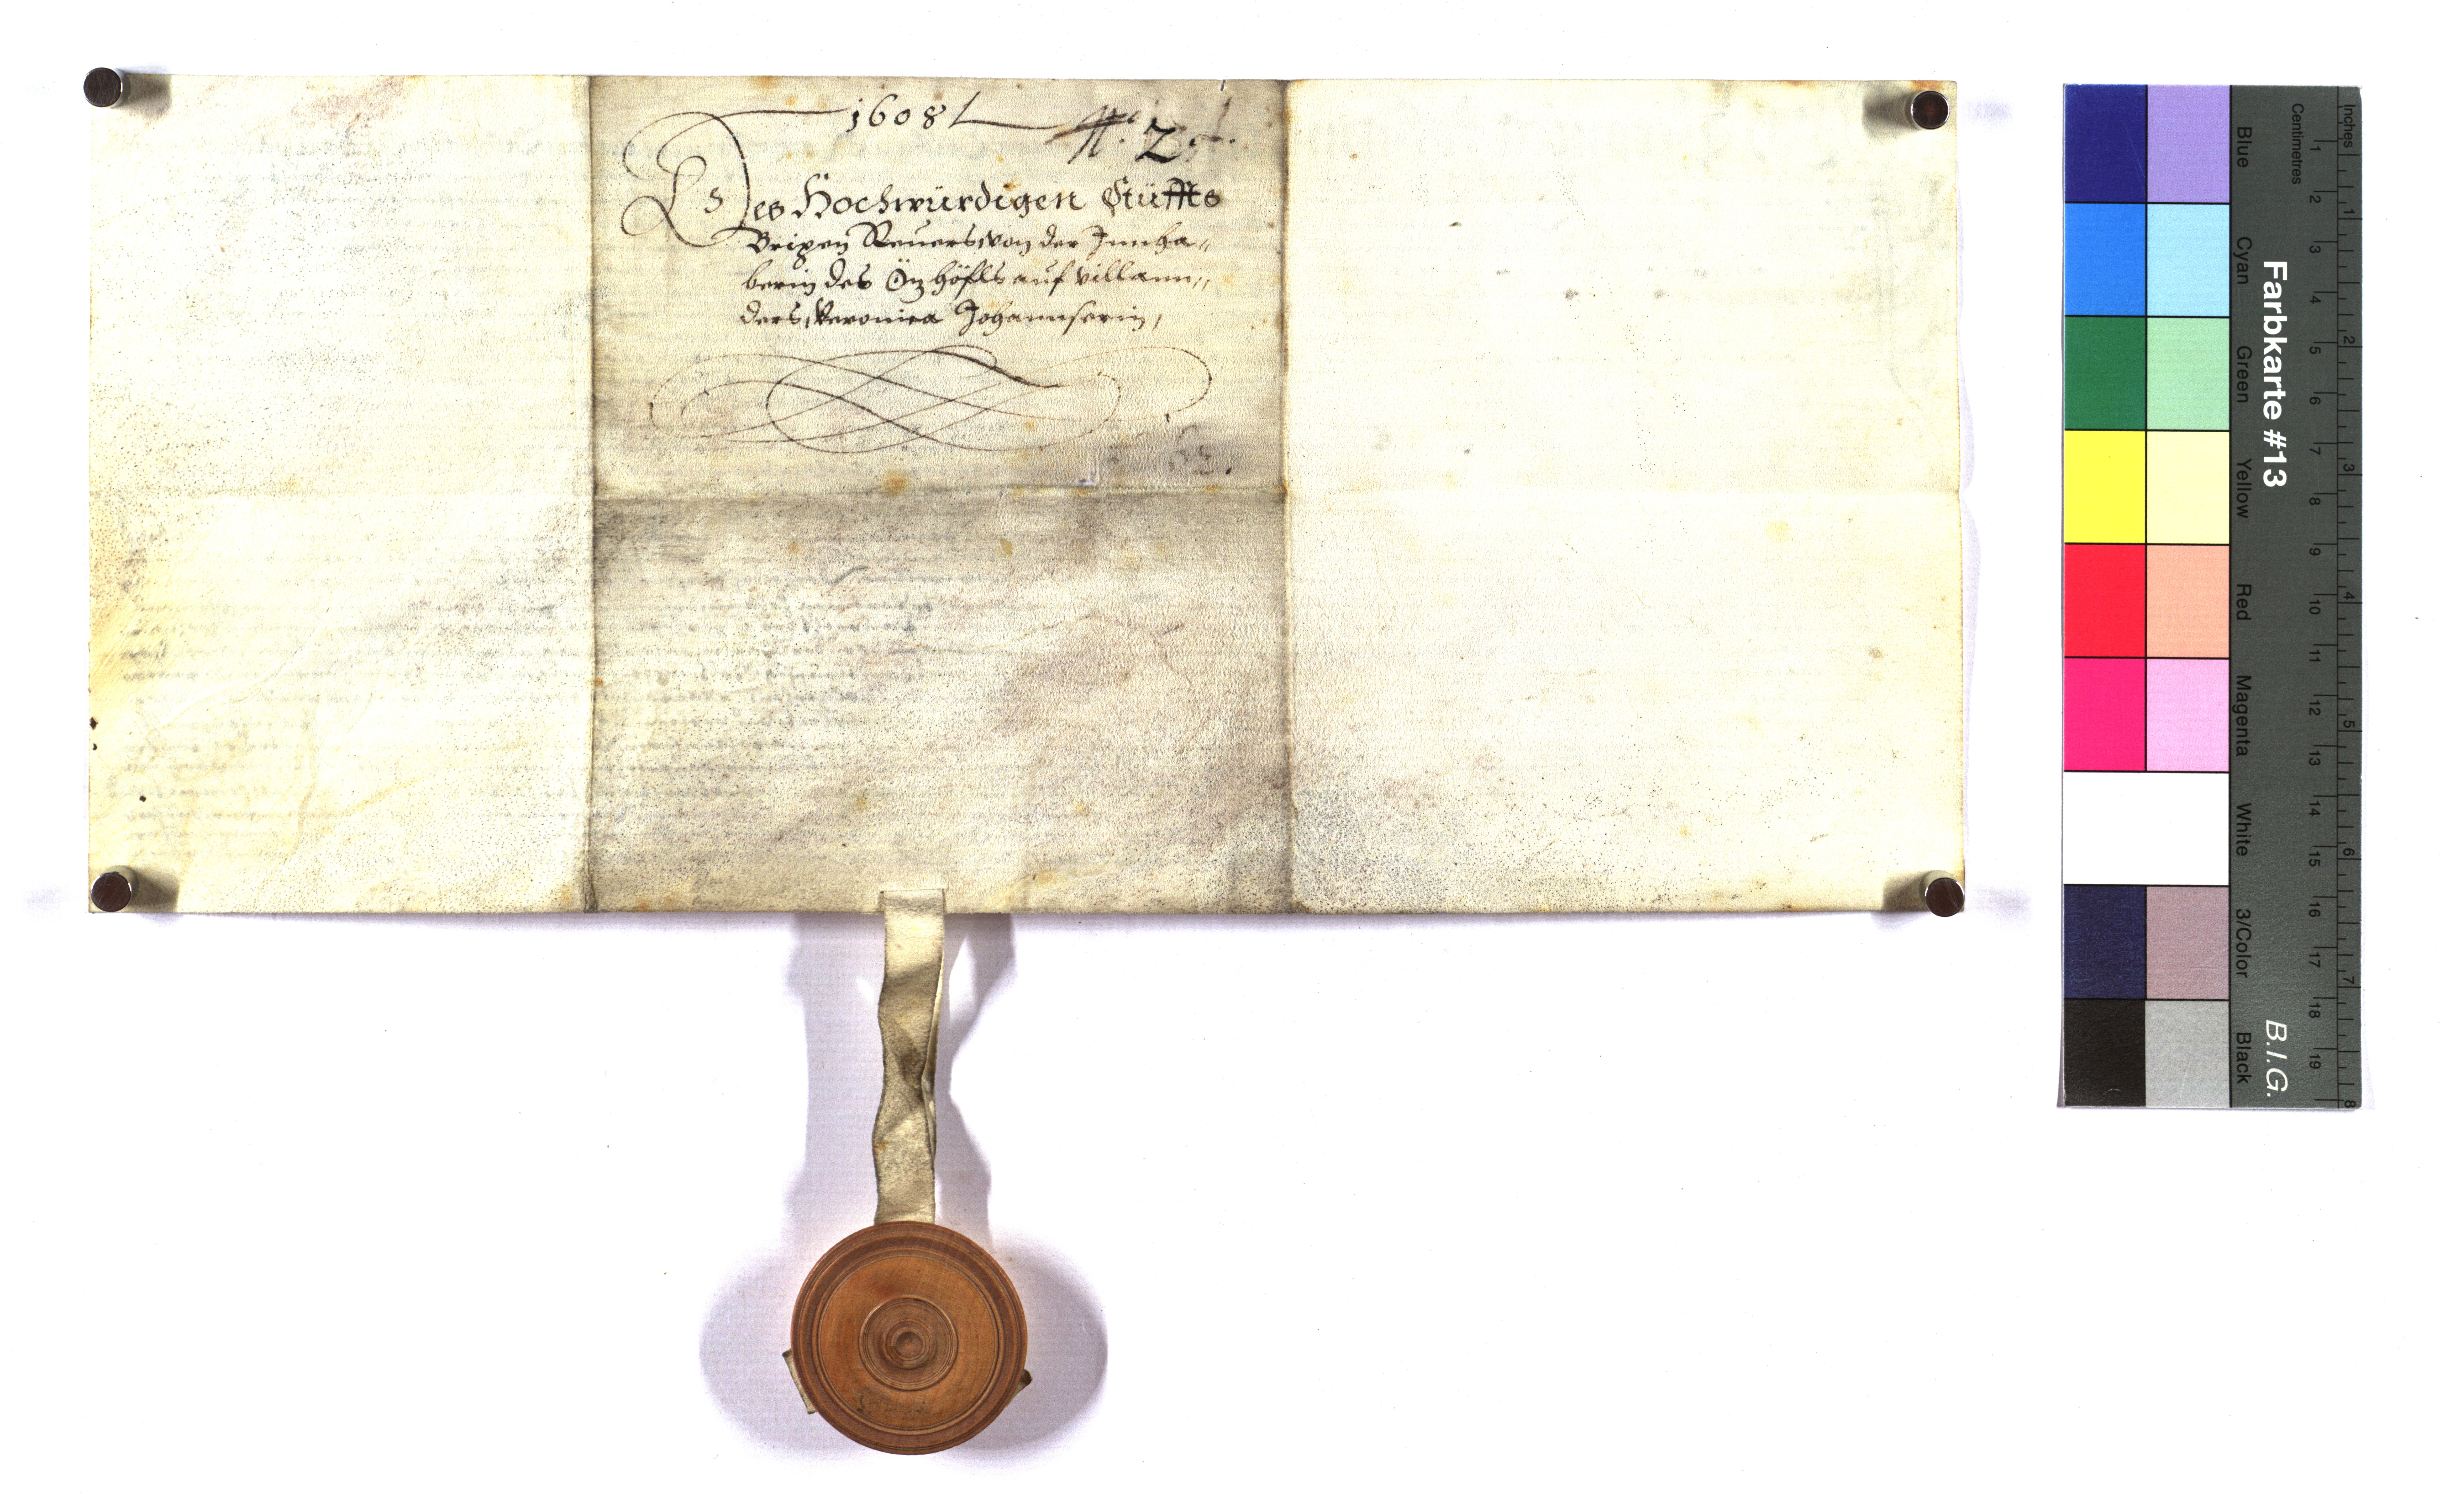 1608
N. 2.
Des Hochwürdigen Stüffts
Brixen Reuers von der Innha„
berin des Önzhöfls auf villann„
ders, Veronica Johannserin,
Farbkarte #13
B.I.G.
Blue
Cyan
Green
Yellow
Red
Magenta
White
3/Color
Black
Inches
1 2 3 4 5 6 7 8
Centimetres
1 2 3 4 5 6 7 8 9 10 11 12 13 14 15 16 17 18 19